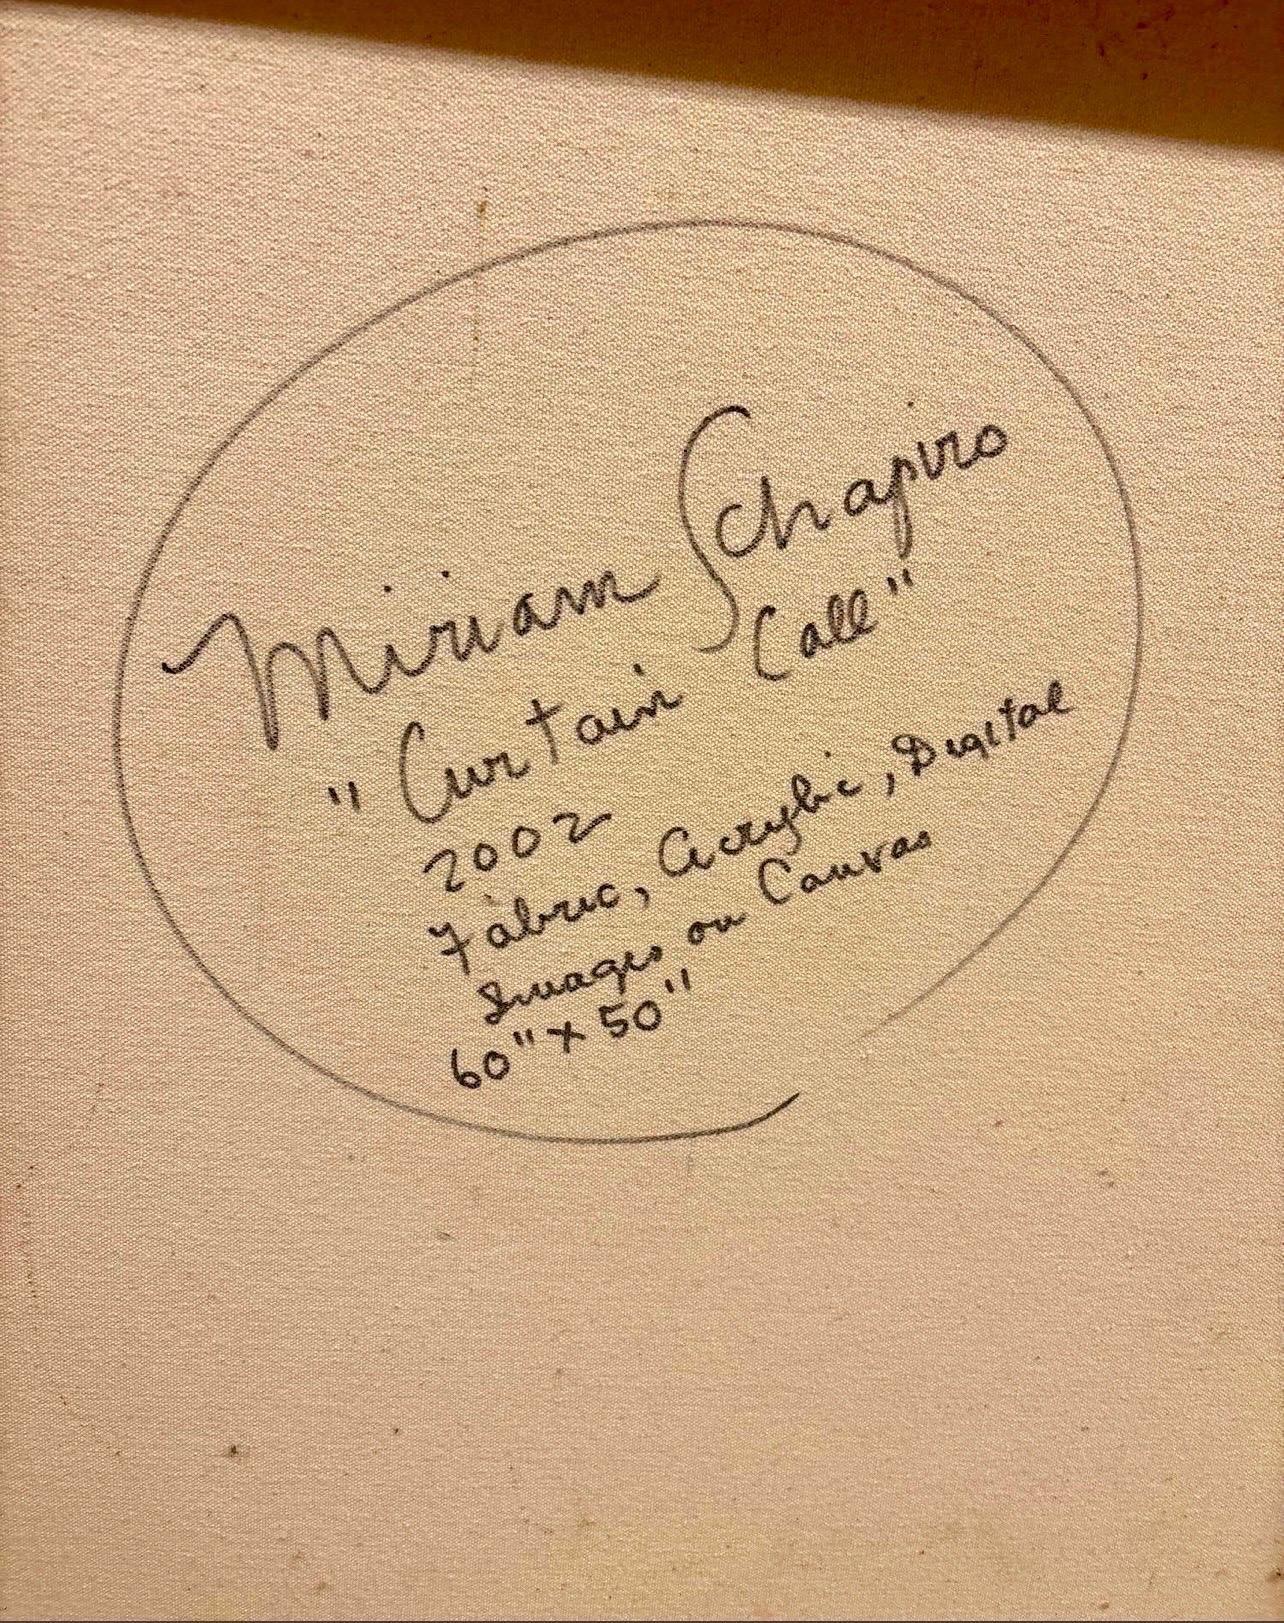 Miriam Schapiro
"Curtain Call"
2002
Fabric, Acrylic, Digital
Images on Canvas
60" x 50"